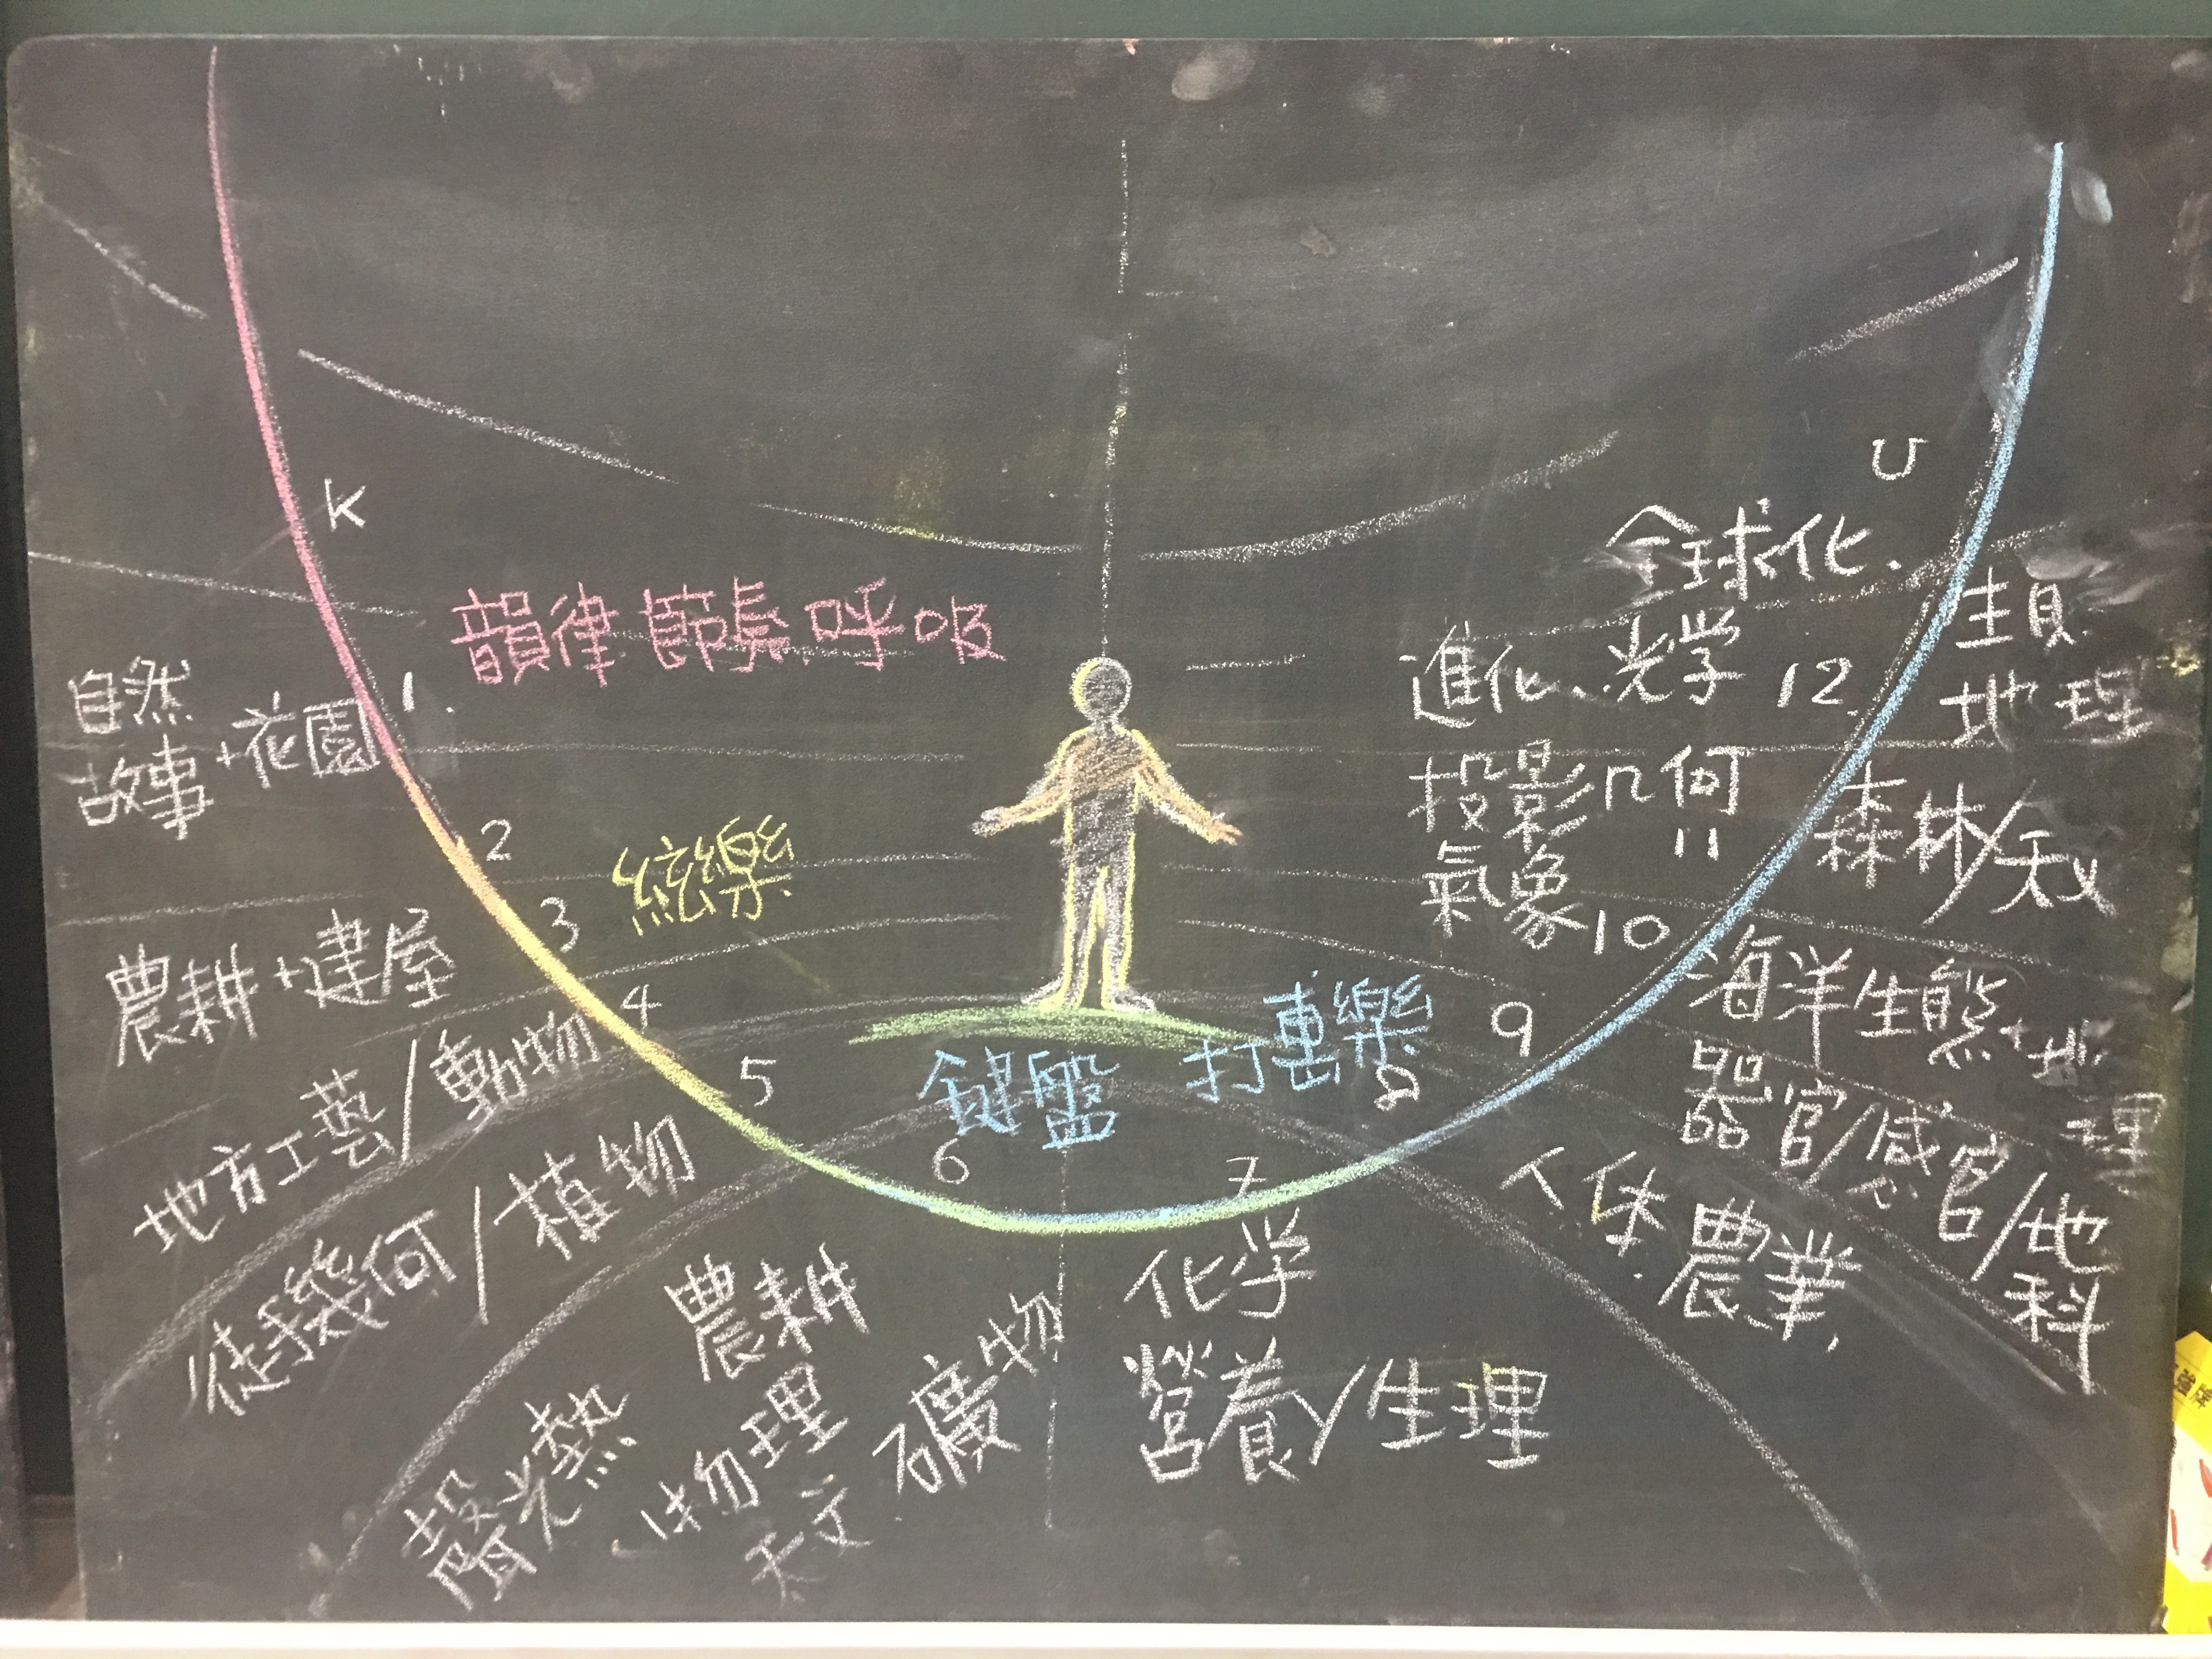 K
U
全球化、
韻律 節奏 呼吸
生
地理
進化、光学 12
自然
故事+花園 1.
投影几何
11
森林/
氣象 10
2
絃樂
3
農耕+建屋
海洋生態+地理
4
9
地方工藝/動物
5
鍵盤 打擊樂
8
器官/感官/地科
6
7
人体
農業
徒手幾何/植物
化学
農耕
礦物
營養/生理
聲光熱
物理
天文